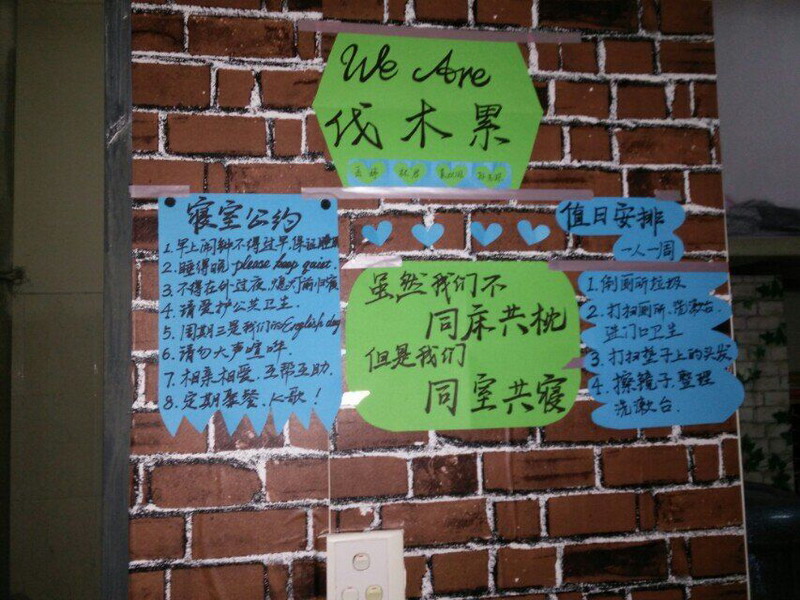 We Are
伐木累
寝室公约
1.早上闹钟不得过早,保证睡眠
2.睡得晚please keep quiet.
3.不得在外过夜,熄灯前归寝
4.请爱护公共卫生.
5.周期三是我们的English day
6.请勿大声喧哗.
7.相亲相爱.互帮互助.
8.定期聚餐、K歌!
虽然我们不
同床共枕
但是我们
同室共寝
值日安排
一人一周
1.倒厕所垃圾
2.打扫厕所、洗漱台.
进门口卫生
3.打扫垫子上的头发
4.擦镜子.整理
洗漱台.